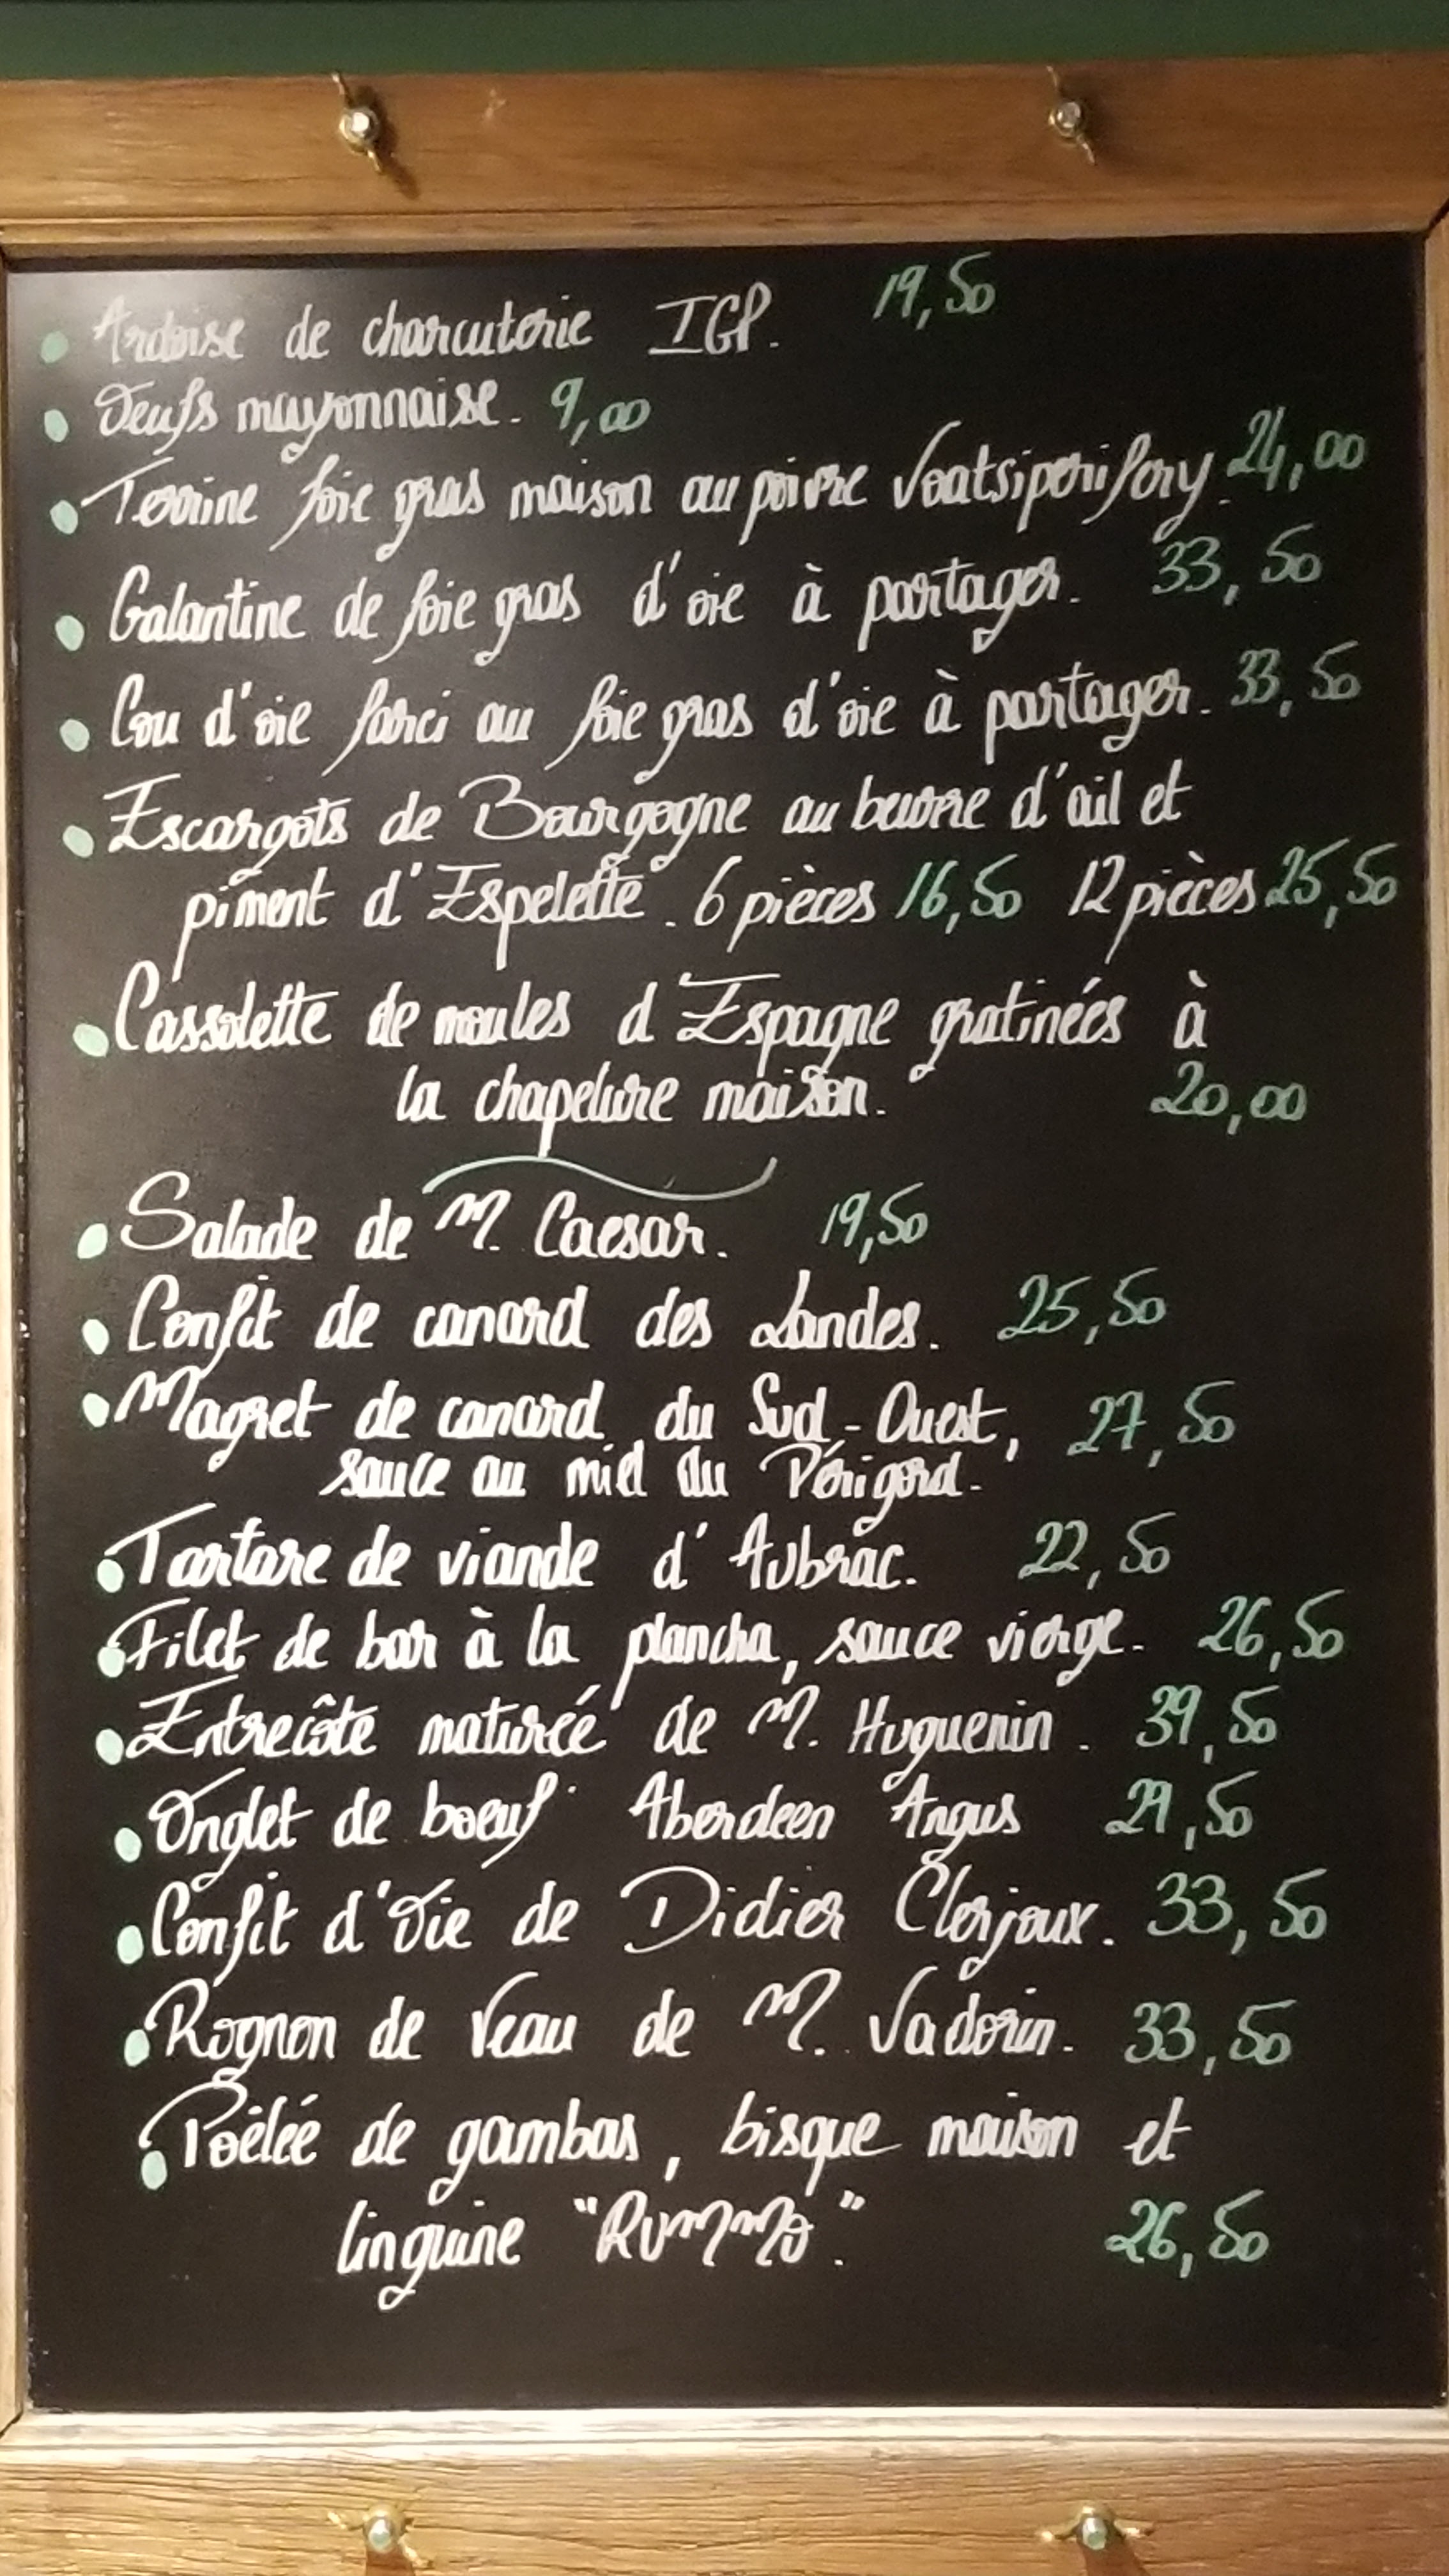 Ardoise de charcuterie IGP. 19,50
Oeufs mayonnaise. 9,00
Terrine foie gras maison au poivre Voatsiperifery. 24,00
Galantine de foie gras d'oie à partager. 33,50
Cou d'oie farci au foie gras d'oie à partager. 33,50
Escargots de Bourgogne au beurre d'ail et
piment d'Espelette. 6 pièces 16,50 12 pièces 25,50
Cassolette de moules d'Espagne gratinées à
la chapelure maison. 20,00
Salade de M. Caesar. 19,50
Confit de canard des Landes. 25,50
Magret de canard du Sud-Ouest, 27,50
sauce au miel du Périgord.
Tartare de viande d'Aubrac. 22,50
Filet de bar à la plancha, sauce vierge. 26,50
Entrecôte maturée de M. Huguenin. 39,50
Onglet de boeuf Aberdeen Angus 29,50
Confit d'Oie de Didier Clerjoux. 33,50
Rognon de Veau de M. Vadorin. 33,50
Poêlée de gambas, bisque maison et
linguine "RUMMO". 26,50